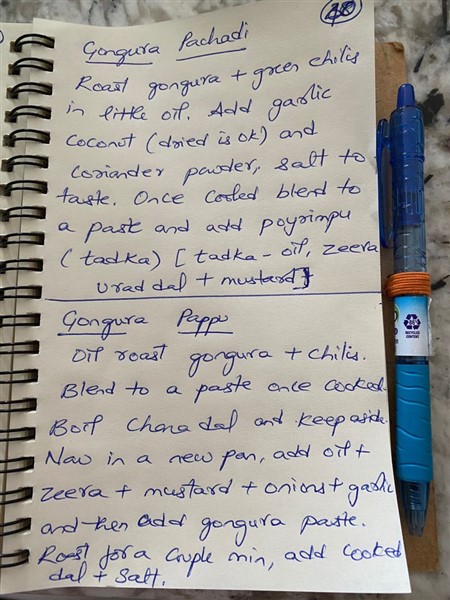 48
Gongura Pachadi
Roast gongura + green chilis
in little oil. Add garlic
coconut (dried is ok) and
coriander powder, salt to
taste. Once cooled blend to
a past and add poyrimpu
(tadka) [tadka - oil, zeera
urad dal + mustard]
Gongura Pappu
Oil roast gongura + chilis.
Blend to a paste once cooked.
Boil Chana dal and keep aside.
Now in a new pan, add oil +
zeera + mustard + onions + garlic
and then add gongura paste.
Roast for a couple min, add cooked
dal + salt.
RECYCLED
CONTENT